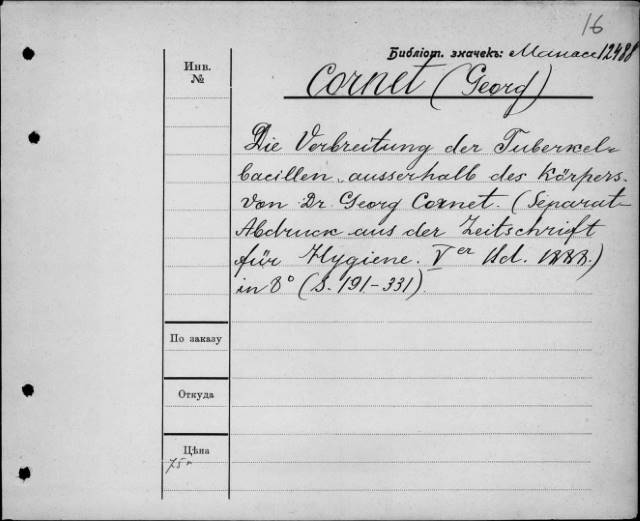 16
Библіот. значекъ: Манасс 12488
Инв.
№
Cornet (Georg)
Die Verbreitung der Tuberkel=
bacillen ausserhalb des Körpers.
Von Dr Georg Cornet. (Separat=
Abdruck aus der Zeitschrift
für Hygiene. Ver Bd. 1888.)
in 8° (S. 191-331).
По заказу
Откуда
Цѣна
75